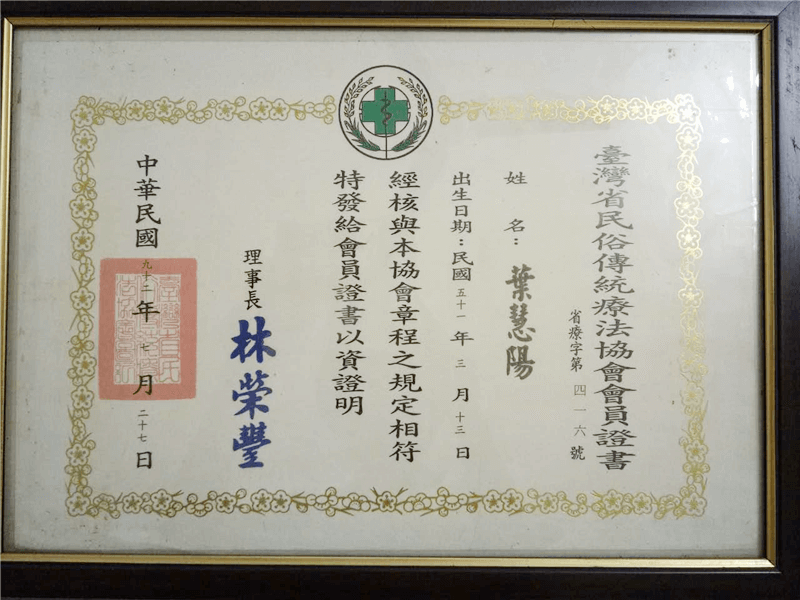 臺灣省民俗傳統療法協會會員證書
省療字第四一六號
姓名：葉慧陽
出生日期：民國五十一年三月十三日
經核與本協會章程之規定相符
特發給會員證書以資證明
理事長 林榮豐
中華民國九十二年七月二十七日